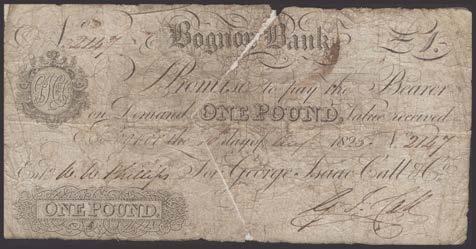 No. 2147 Bognor Bank £1
I Promise to pay the Bearer
on Demand ONE POUND, Value received
Bognor the day of 1825 No. 2147
Entd. W. W. Phillips For George Isaac Call & Co.
ONE POUND. G. I. Call